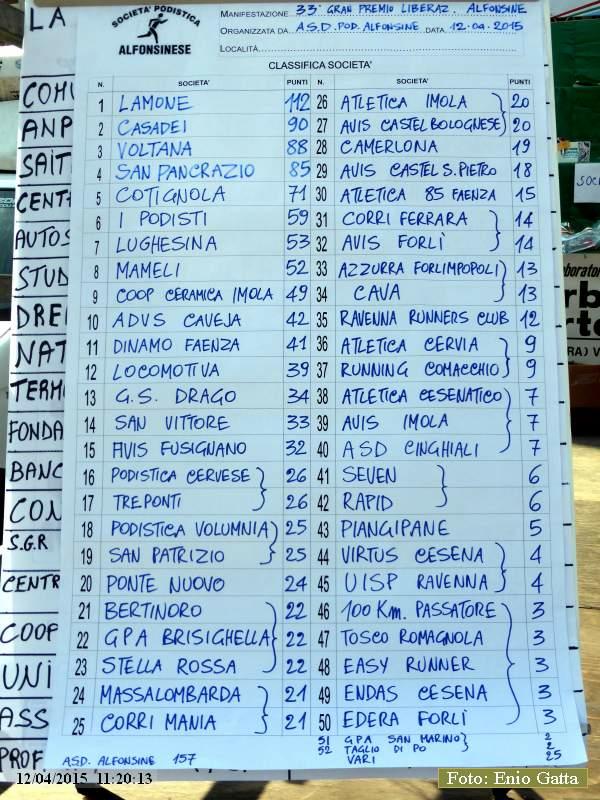 LA
SOCIETA' PODISTICA
ALFONSINESE
MANIFESTAZIONE 33° GRAN PREMIO LIBERAZ. ALFONSINE
ORGANIZZATA DA A.S.D. POD. ALFONSINE DATA 12.04.2015
LOCALITÀ
CLASSIFICA SOCIETA'
N. SOCIETA' PUNTI N. SOCIETA' PUNTI
1 LAMONE 112 26 ATLETICA IMOLA 20
2 CASADEI 90 27 AVIS CASTELBOLOGNESE 20
3 VOLTANA 88 28 CAMERLONA 19
4 SAN PANCRAZIO 85 29 AVIS CASTEL S. PIETRO 18
5 COTIGNOLA 71 30 ATLETICA 85 FAENZA 15
6 I PODISTI 59 31 CORRI FERRARA 14
7 LUGHESINA 53 32 AVIS FORLÌ 14
8 MAMELI 52 33 AZZURRA FORLIMPOPOLI 13
9 COOP CERAMICA IMOLA 49 34 CAVA 13
10 ADVS CAVEJA 42 35 RAVENNA RUNNERS CLUB 12
11 DINAMO FAENZA 41 36 ATLETICA CERVIA 9
12 LOCOMOTIVA 39 37 RUNNING COMACCHIO 9
13 G.S. DRAGO 34 38 ATLETICA CESENATICO 7
14 SAN VITTORE 33 39 AVIS IMOLA 7
15 AVIS FUSIGNANO 32 40 ASD CINGHIALI 7
16 PODISTICA CERVESE 26 41 SEVEN 6
17 TREPONTI 26 42 RAPID 6
18 PODISTICA VOLUMNIA 25 43 PIANGIPANE 5
19 SAN PATRIZIO 25 44 VIRTUS CESENA 4
20 PONTE NUOVO 24 45 UISP RAVENNA 4
21 BERTINORO 22 46 100 Km. PASSATORE 3
22 GPA BRISIGHELLA 22 47 TOSCO ROMAGNOLA 3
23 STELLA ROSSA 22 48 EASY RUNNER 3
24 MASSALOMBARDA 21 49 ENDAS CESENA 3
25 CORRI MANIA 21 50 EDERA FORLÌ 3
51 GPA SAN MARINO 2
52 TAGLIO DI PO 2
VARI 25
ASD. ALFONSINE 157
COMU
ANP
SAIT
CENT
AUTOS
STUD
DRE
NAT
TERM
FONDA
BANC
CON
S.G.R
CENTR
COOP
UNI
ASS
PROF
SOC
laborator
rb
rte
RA) V
12/04/2015 11:20:13
Foto: Enio Gatta